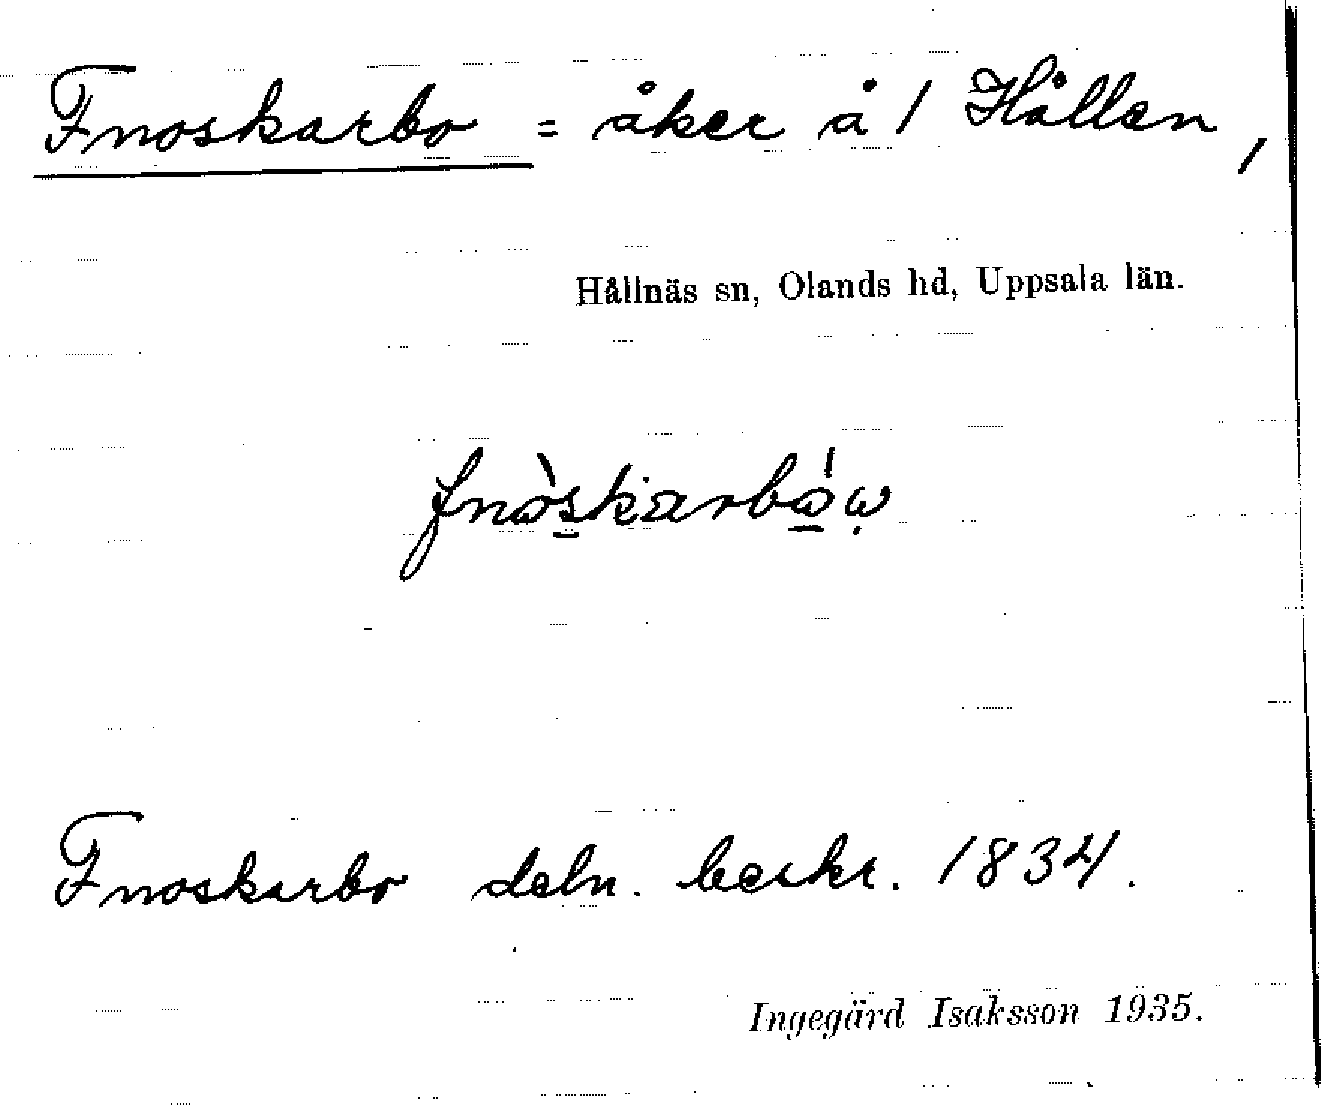 Fnoskarbo = åker å 1 Hållen,
Hållnäs sn, Olands hd, Uppsala län.
Fnoskarbo deln. beskr. 1834.
Ingegärd Isaksson 1935.